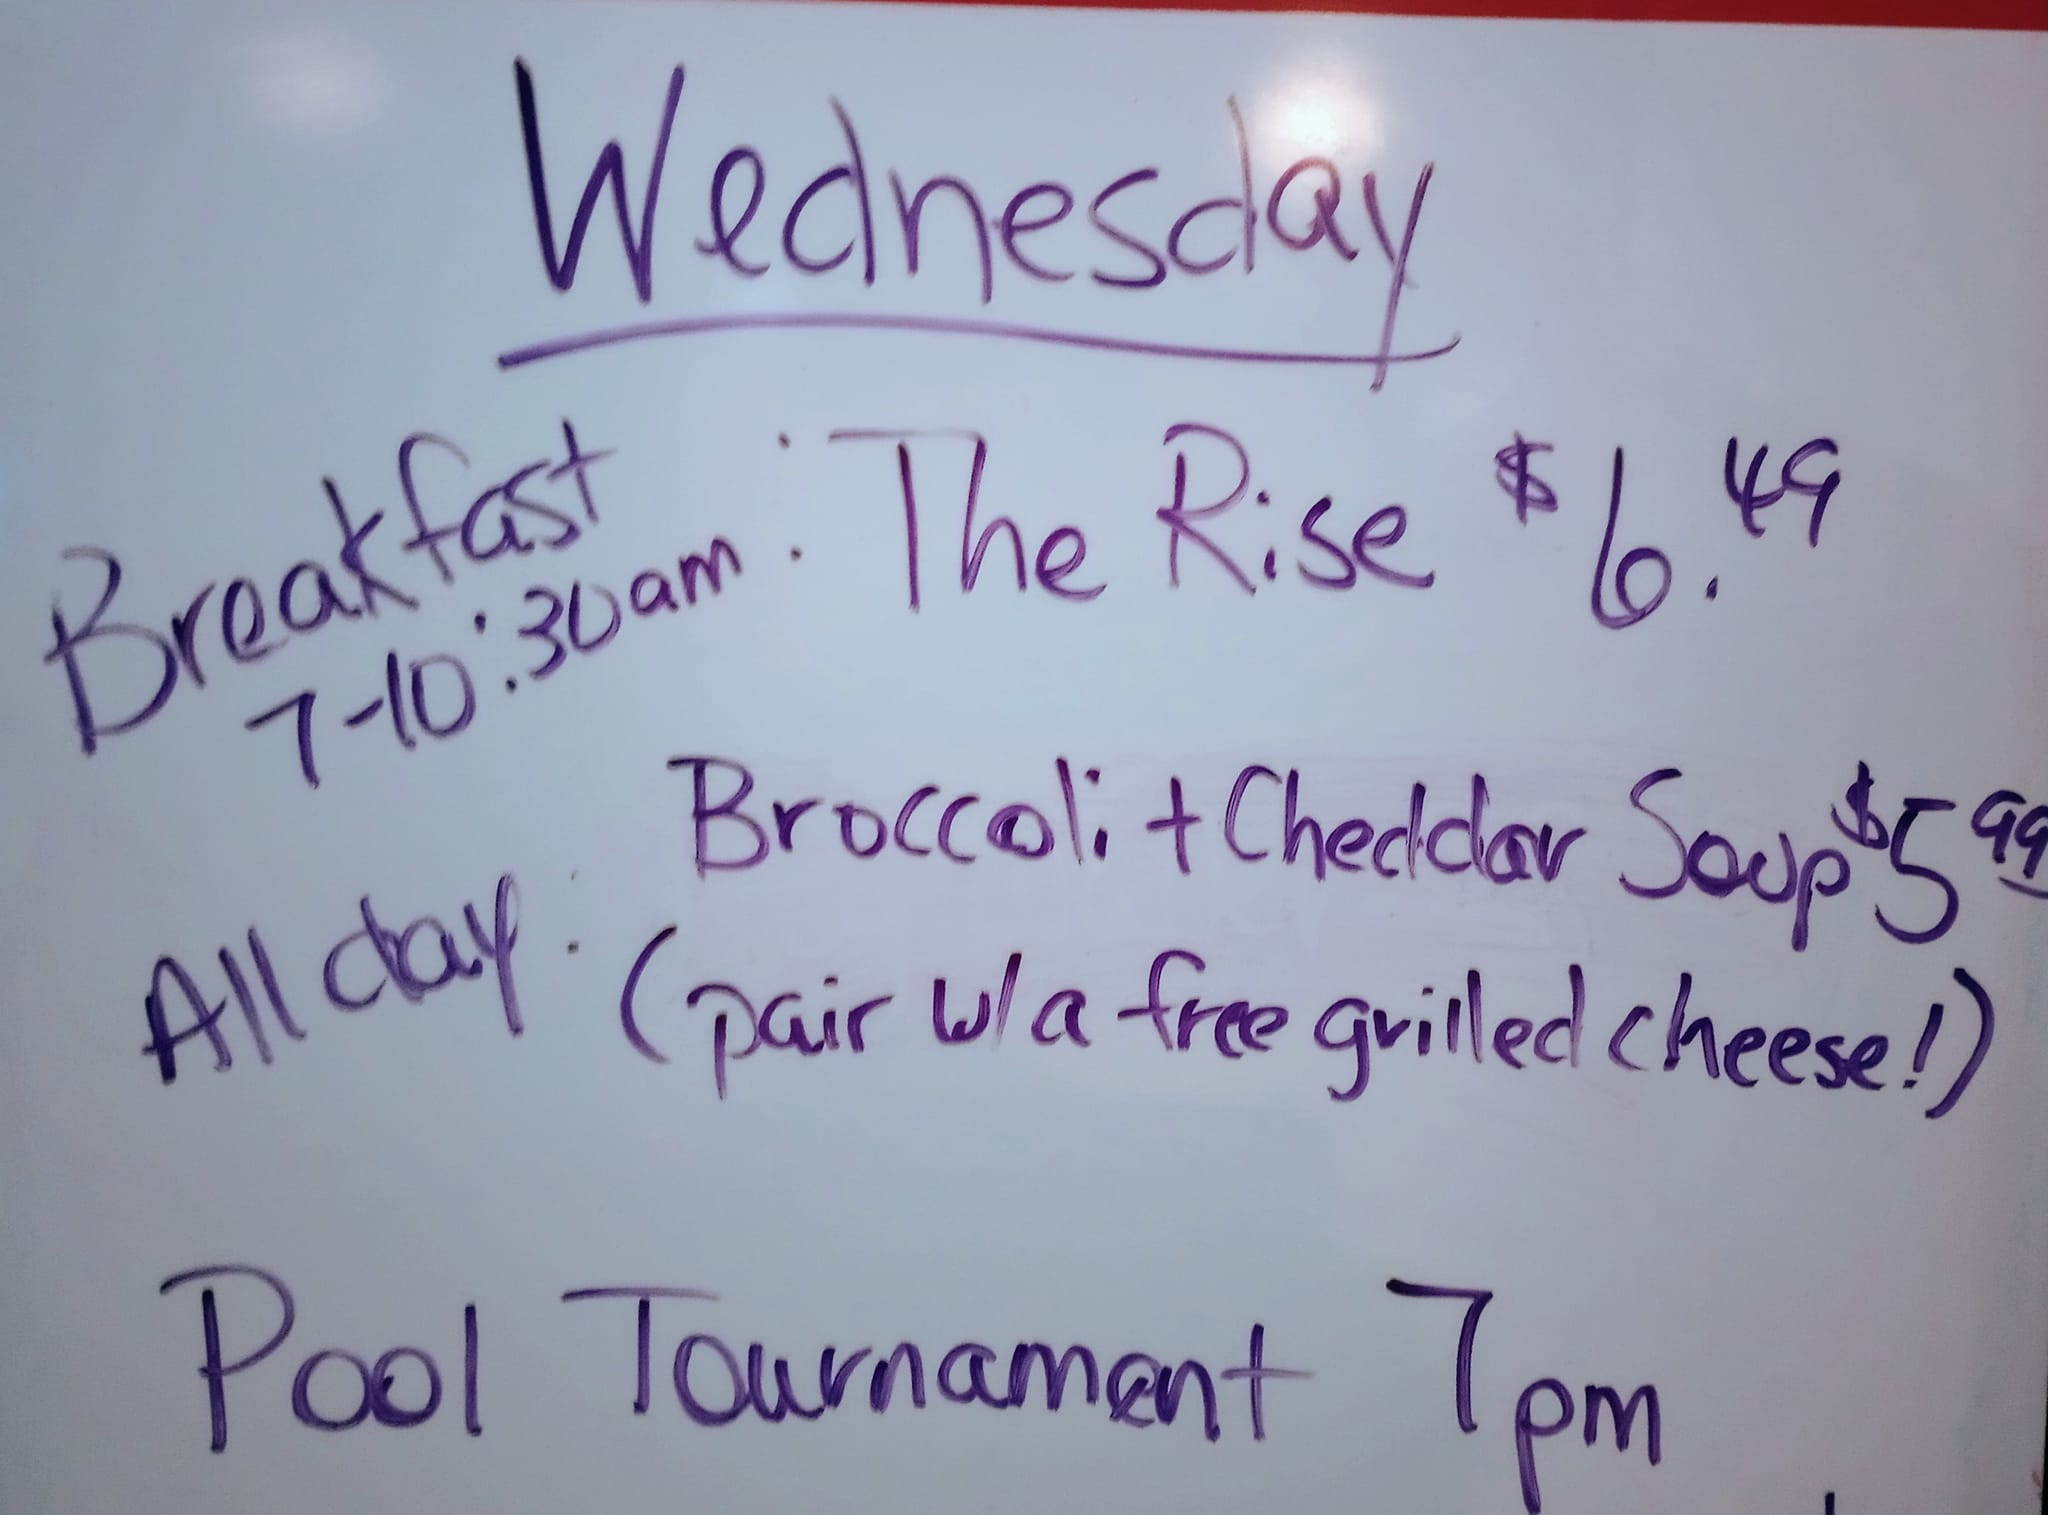 Wednesday
Breakfast
7-10:30am : The Rise $6.49
Broccoli + Cheddar Soup $5 99
All day: (pair w/ a free grilled cheese!)
Pool Tournament 7pm